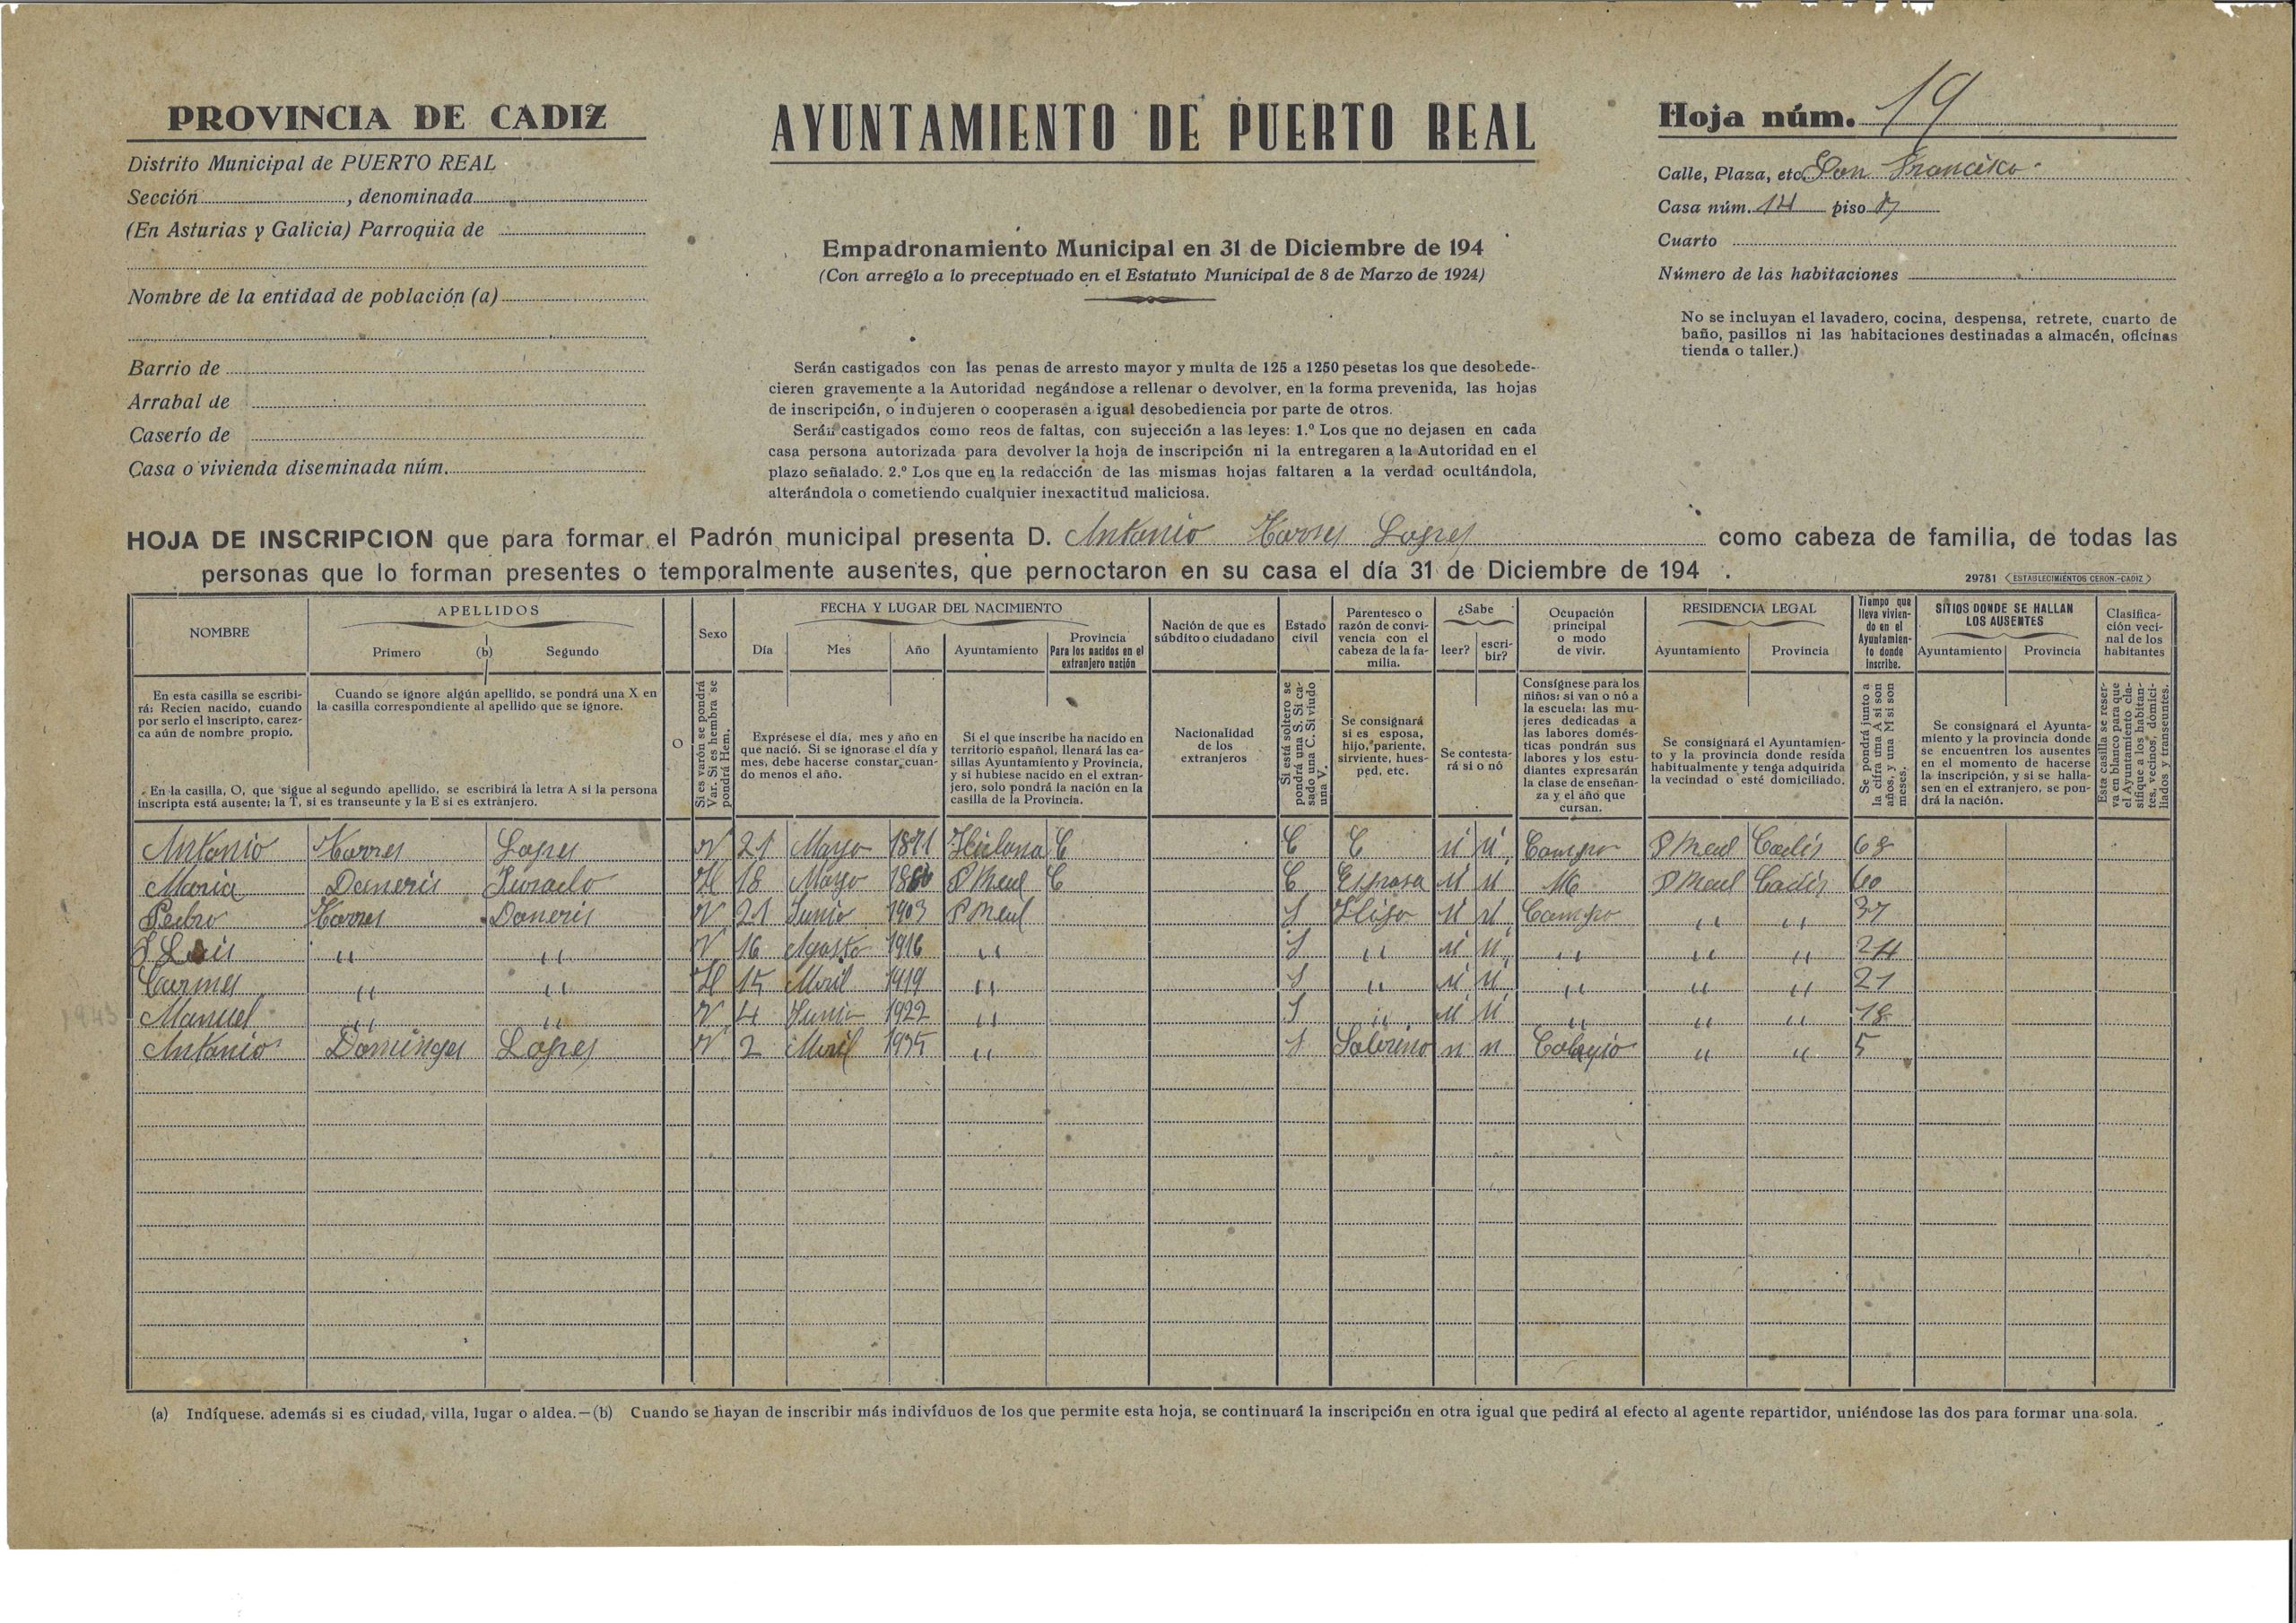 PROVINCIA DE CADIZ
Distrito Municipal de PUERTO REAL
Sección , denominada
(En Asturias y Galicia) Parroquia de
Nombre de la entidad de población (a)
Barrio de
Arrabal de
Caserío de
Casa o vivienda diseminada núm.
AYUNTAMIENTO DE PUERTO REAL
Empadronamiento Municipal en 31 de Diciembre de 194
(Con arreglo a lo preceptuado en el Estatuto Municipal de 8 de Marzo de 1924)
Serán castigados con las penas de arresto mayor y multa de 125 a 1250 pesetas los que desobede-
cieren gravemente a la Autoridad negándose a rellenar o devolver, en la forma prevenida, las hojas
de inscripción, o indujeren o cooperasen a igual desobediencia por parte de otros.
Serán castigados como reos de faltas, con sujección a las leyes: 1.º Los que no dejasen en cada
casa persona autorizada para devolver la hoja de inscripción ni la entregaren a la Autoridad en el
plazo señalado. 2.º Los que en la redacción de las mismas hojas faltaren a la verdad ocultándola,
alterándola o cometiendo cualquier inexactitud maliciosa.
Hoja núm. 19
Calle, Plaza, etc. Don Francisco
Casa núm. 14 piso
Cuarto
Número de las habitaciones
No se incluyan el lavadero, cocina, despensa, retrete, cuarto de
baño, pasillos ni las habitaciones destinadas a almacén, oficinas
tienda o taller.)
HOJA DE INSCRIPCION que para formar el Padrón municipal presenta D. Antonio Lopes como cabeza de familia, de todas las
personas que lo forman presentes o temporalmente ausentes, que pernoctaron en su casa el día 31 de Diciembre de 194 .
29781 ESTABLECIMIENTOS CERON.-CADIZ
NOMBRE
APELLIDOS
Primero (b) Segundo
Sexo
FECHA Y LUGAR DEL NACIMIENTO
Día Mes Año Ayuntamiento
Provincia
Para los nacidos en el
extranjero nación
Nación de que es
súbdito o ciudadano
Estado
civil
Parentesco o
razón de convi-
vencia con el
cabeza de la fa-
milia.
¿Sabe
leer? escri-
bir?
Ocupación
principal
o modo
de vivir.
RESIDENCIA LEGAL
Ayuntamiento Provincia
Tiempo que
lleva vivien-
do en el
Ayuntamien-
to donde
inscribe.
SITIOS DONDE SE HALLAN
LOS AUSENTES
Ayuntamiento Provincia
Clasifica-
ción veci-
nal de los
habitantes
En esta casilla se escribi-
rá: Recien nacido, cuando
por serlo el inscripto, carez-
ca aún de nombre propio.
Cuando se ignore algún apellido, se pondrá una X en
la casilla correspondiente al apellido que se ignore.
En la casilla, O, que sigue al segundo apellido, se escribirá la letra A si la persona
inscripta está ausente; la T, si es transeunte y la E si es extranjero.
O
Si es varón se pondrá
Var. Si es hembra se
pondrá Hem.
Exprésese el día, mes y año en
que nació. Si se ignorase el día y
mes, debe hacerse constar cuan-
do menos el año.
Si el que inscribe ha nacido en
territorio español, llenará las ca-
sillas Ayuntamiento y Provincia,
y si hubiese nacido en el extran-
jero, solo pondrá la nación en la
casilla de la Provincia.
Nacionalidad
de los
extranjeros
Si está soltero se
pondrá una S. Si ca-
sado una C. Si viudo
una V.
Se consignará
si es esposa,
hijo, pariente,
sirviente, hues-
ped, etc.
Se contesta-
rá si o nó
Consígnese para los
niños: si van o nó a
la escuela: las mu-
jeres dedicadas a
las labores domés-
ticas pondrán sus
labores y los estu-
diantes expresarán
la clase de enseñan-
za y el año que
cursan.
Se consignará el Ayuntamien-
to y la provincia donde resida
habitualmente y tenga adquirida
la vecindad o esté domiciliado.
Se pondrá junto a
la cifra una A si son
años, y una M si son
meses.
Se consignará el Ayunta-
miento y la provincia donde
se encuentren los ausentes
en el momento de hacerse
la inscripción, y si se halla-
sen en el extranjero, se pon-
drá la nación.
Esta casilla se reser-
va en blanco para que
el Ayuntamiento cla-
sifique a los habitan-
tes, vecinos, domici-
liados y transeuntes.
Antonio Lopes V 21 Mayo 1871 C C C si si Campo P Real Cadis 68
Maria Daneris Jurado H 18 Mayo P Real C C Esposa si si P Real Cadis 60
Pedro Daneris V 21 Junio 1903 P Real S Hijo si si Campo " " 37
Luis " " V 16 Agosto 1916 " S " si si " " " 24
Carmen " " H 15 Abril 1919 " S " si si " " " 21
Manuel " " V 4 Junio 1922 " S " si si " " " 18
Antonio Domingues Lopes V 2 Abril 1935 " S Sobrino n n Colegio " " 5
(a) Indíquese. además si es ciudad, villa, lugar o aldea.—(b) Cuando se hayan de inscribir más indivíduos de los que permite esta hoja, se continuará la inscripción en otra igual que pedirá al efecto al agente repartidor, uniéndose las dos para formar una sola.